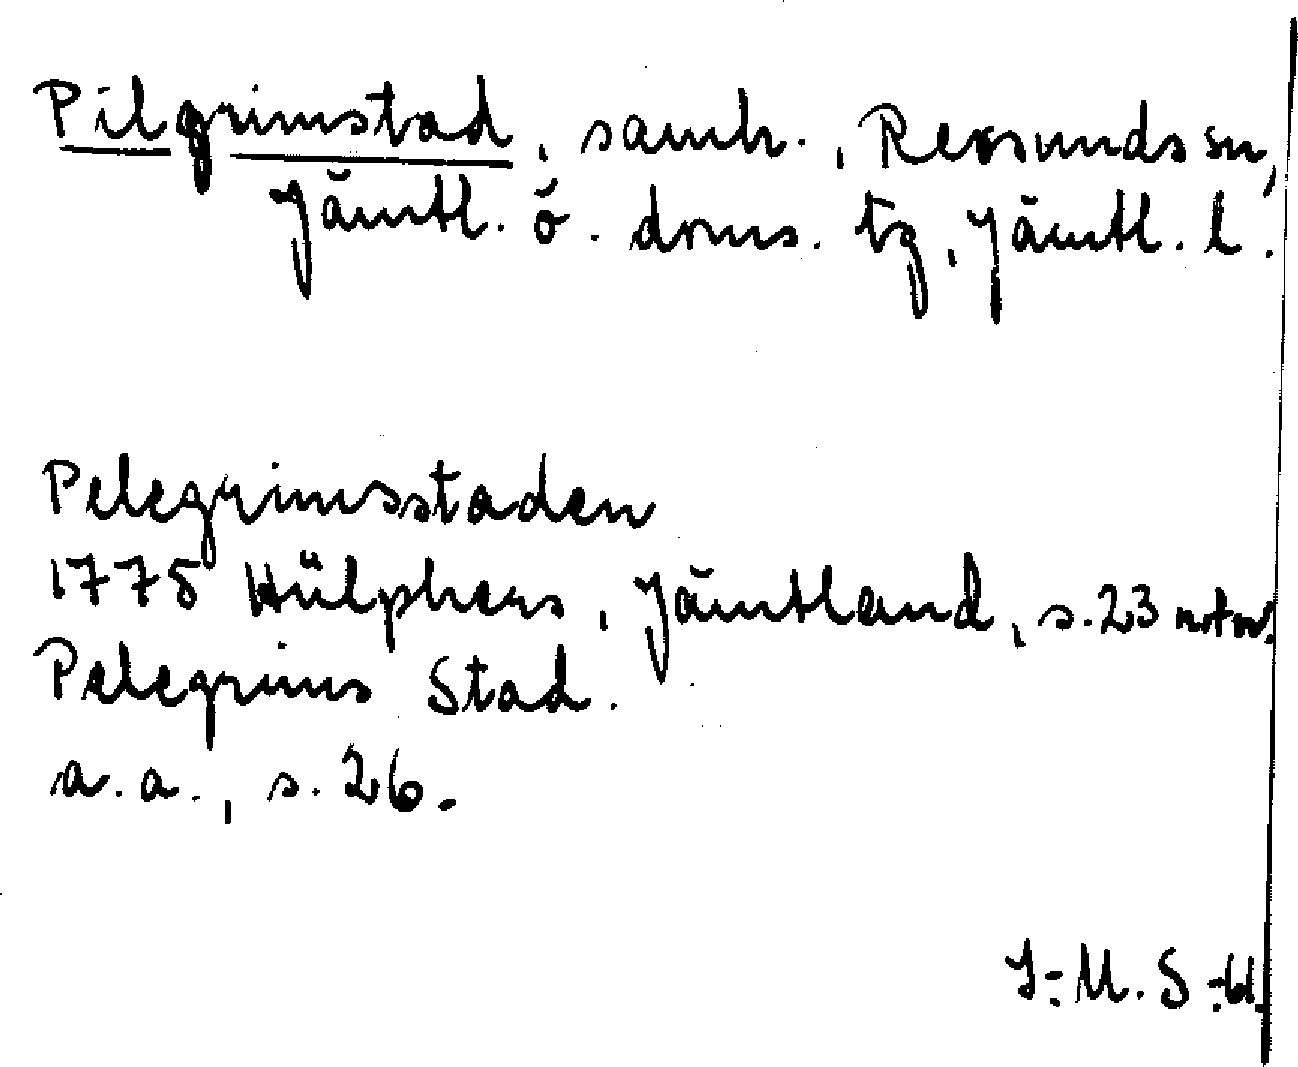 Pilgrimstad, samh., Revsunds sn,
Jämtl. ö. doms. tg, Jämtl. l.
Pelegrimsstaden
1775 Hülphers, Jämtland, s. 23 not
Pelegrims Stad.
a. a., s. 26.
I-M. S-61.